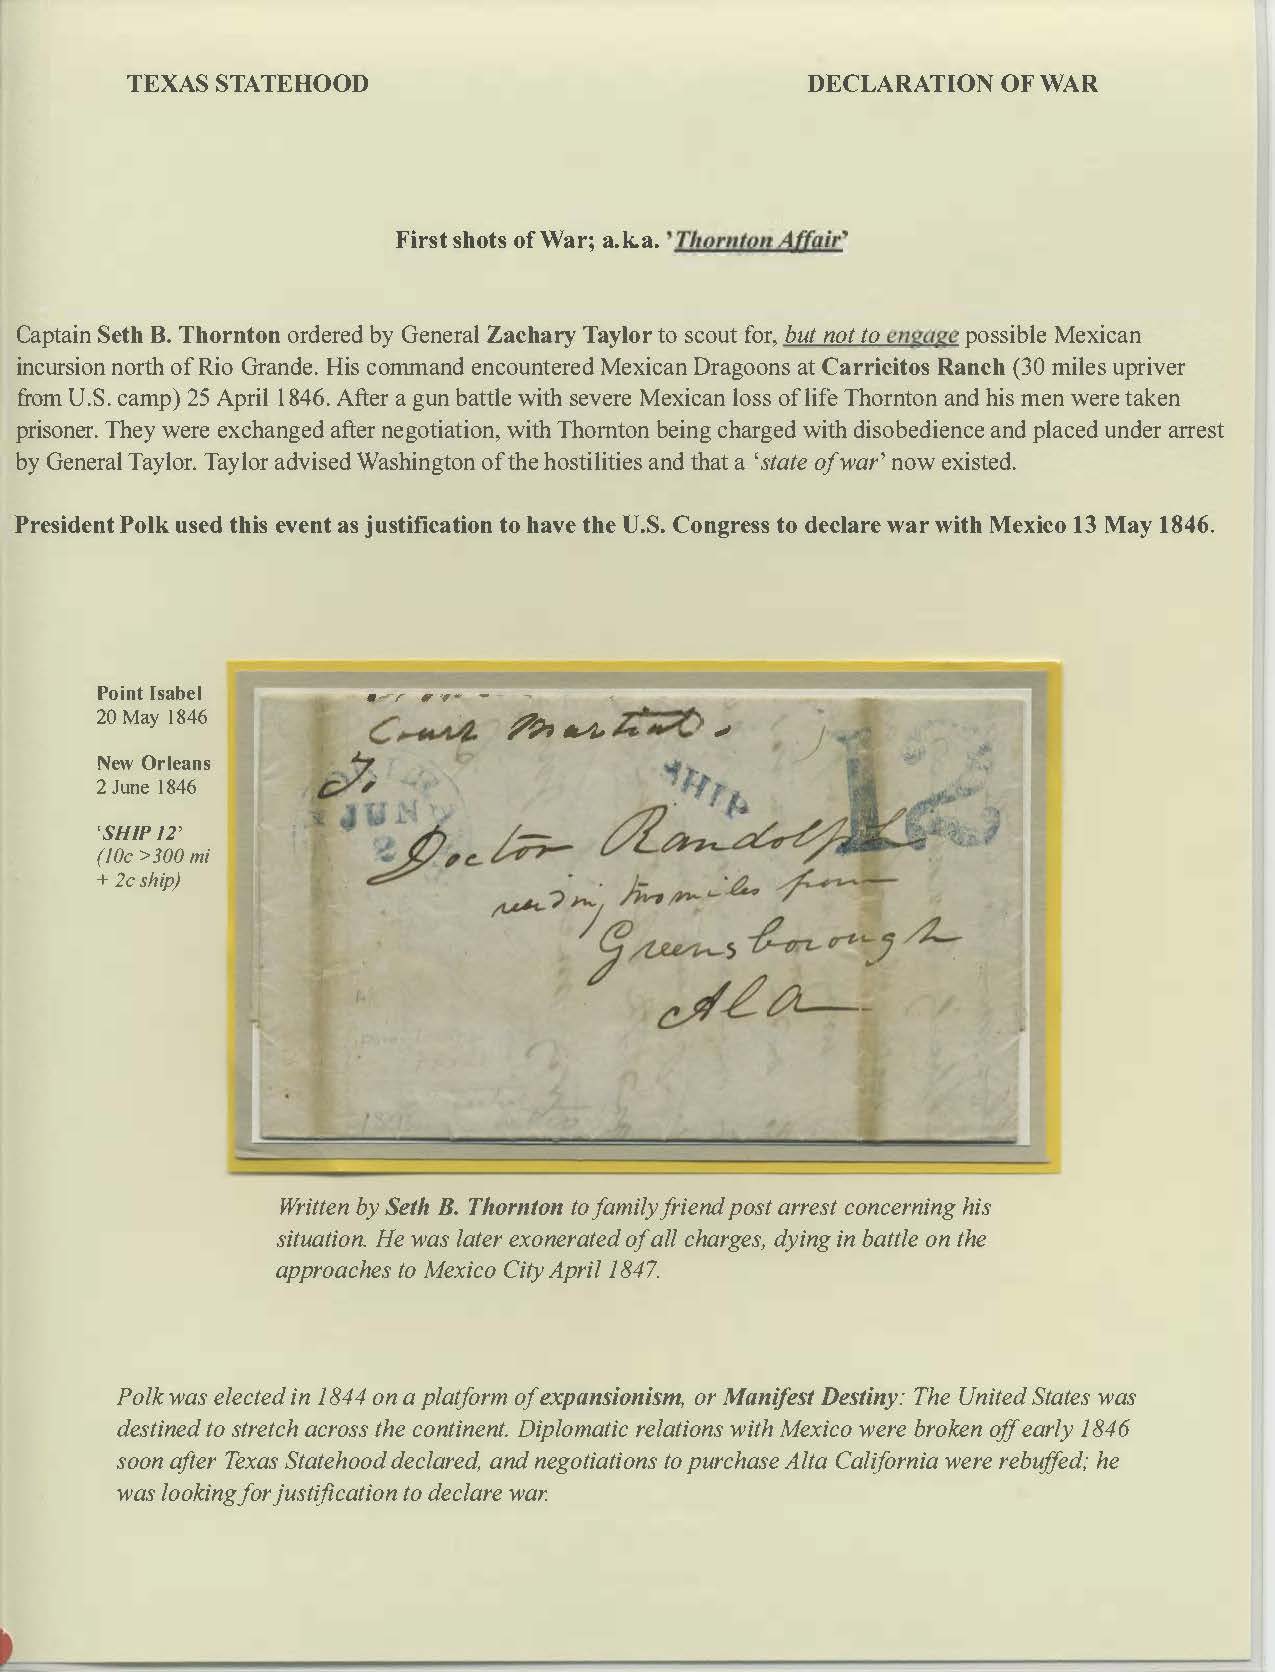 TEXAS STATEHOOD DECLARATION OF WAR
First shots of War; a.k.a. 'Thornton Affair'
Captain Seth B. Thornton ordered by General Zachary Taylor to scout for, but not to engage possible Mexican
incursion north of Rio Grande. His command encountered Mexican Dragoons at Carricitos Ranch (30 miles upriver
from U.S. camp) 25 April 1846. After a gun battle with severe Mexican loss of life Thornton and his men were taken
prisoner. They were exchanged after negotiation, with Thornton being charged with disobedience and placed under arrest
by General Taylor. Taylor advised Washington of the hostilities and that a 'state of war' now existed.
President Polk used this event as justification to have the U.S. Congress to declare war with Mexico 13 May 1846.
Point Isabel
20 May 1846
New Orleans
2 June 1846
'SHIP 12'
(10c >300 mi
+ 2c ship)
Court Martial.
To
SHIP
12
JUN
2
Doctor Randolph
two miles from
Greensborough
Ala
Written by Seth B. Thornton to family friend post arrest concerning his
situation. He was later exonerated of all charges, dying in battle on the
approaches to Mexico City April 1847.
Polk was elected in 1844 on a platform of expansionism, or Manifest Destiny: The United States was
destined to stretch across the continent. Diplomatic relations with Mexico were broken off early 1846
soon after Texas Statehood declared, and negotiations to purchase Alta California were rebuffed; he
was looking for justification to declare war.